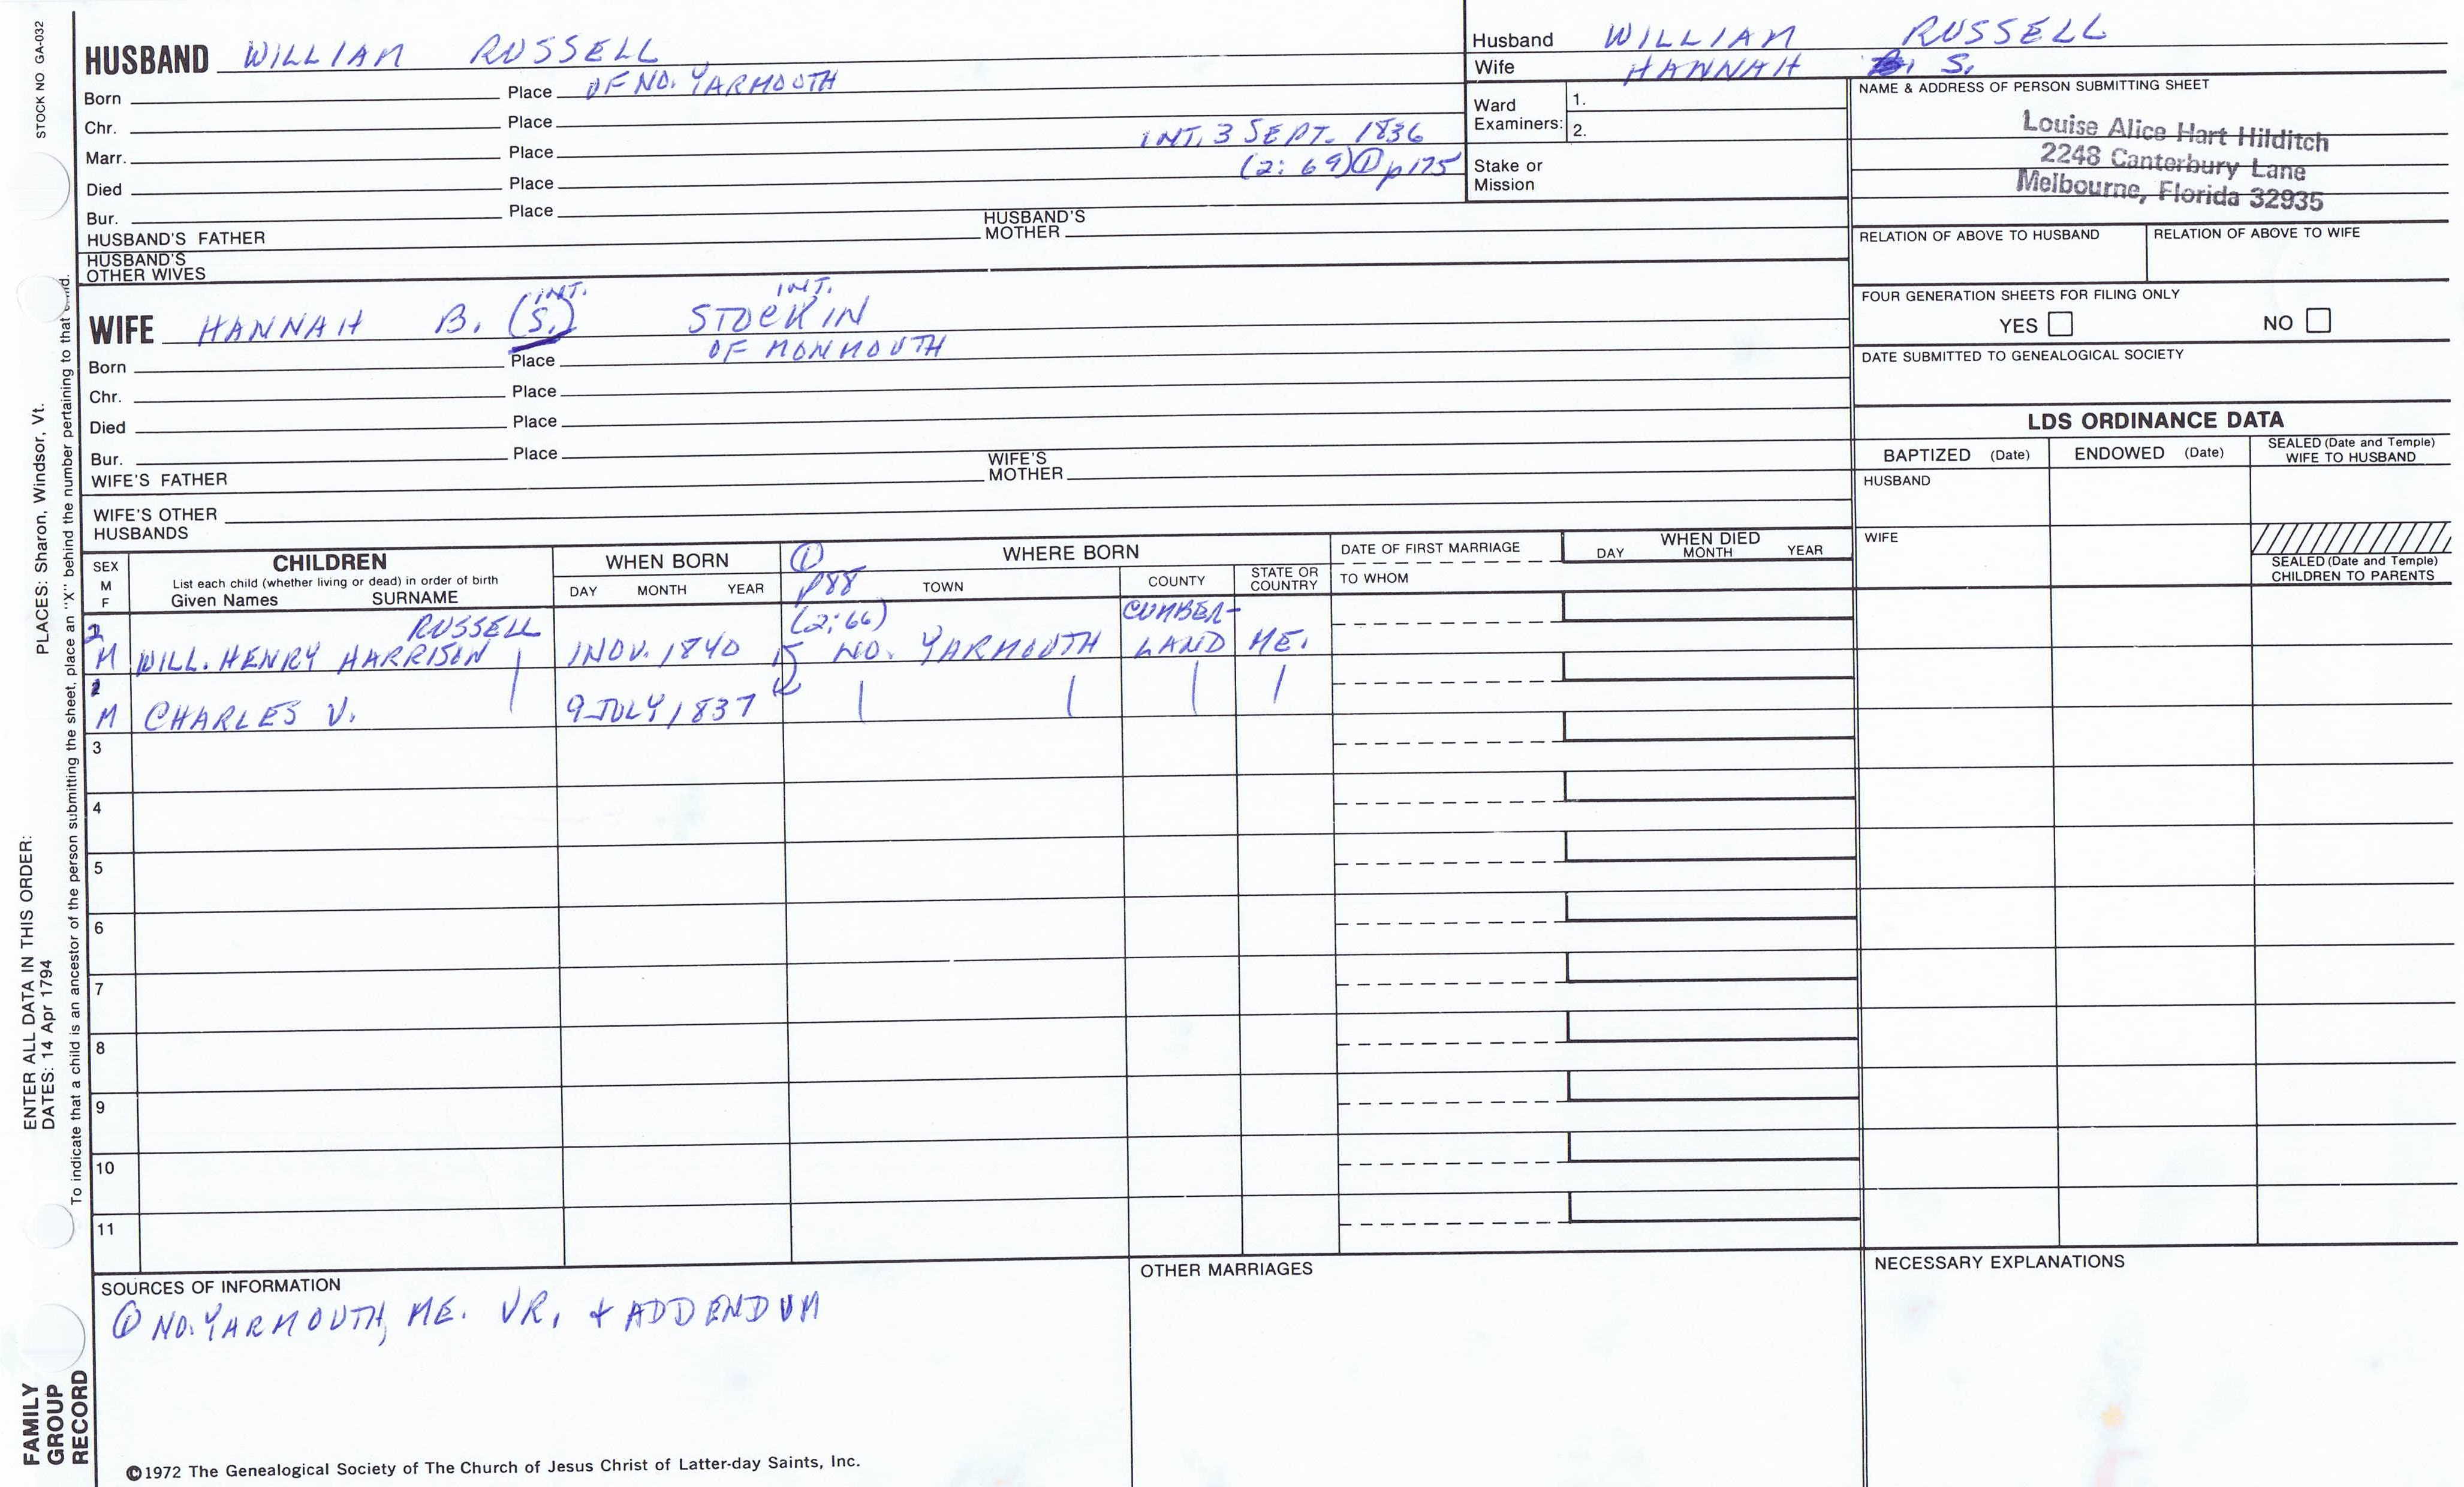 STOCK NO GA-032
HUSBAND WILLIAM RUSSELL
Born Place OF NO. YARMOUTH
Chr. Place
Marr. Place INT. 3 SEPT. 1836
Died Place (2: 69) ① p 175
Bur. Place
HUSBAND'S FATHER HUSBAND'S MOTHER
HUSBAND'S OTHER WIVES
Husband WILLIAM RUSSELL
Wife HANNAH S.
Ward Examiners: 1.
2.
Stake or Mission
NAME & ADDRESS OF PERSON SUBMITTING SHEET
Louise Alice Hart Hilditch
2248 Canterbury Lane
Melbourne, Florida 32935
RELATION OF ABOVE TO HUSBAND RELATION OF ABOVE TO WIFE
FOUR GENERATION SHEETS FOR FILING ONLY
YES NO
DATE SUBMITTED TO GENEALOGICAL SOCIETY
INT. INT.
WIFE HANNAH B. (S.) STOCKIN
Born Place OF MONMOUTH
Chr. Place
Died Place
Bur. Place
WIFE'S FATHER WIFE'S MOTHER
WIFE'S OTHER HUSBANDS
LDS ORDINANCE DATA
BAPTIZED (Date) ENDOWED (Date) SEALED (Date and Temple) WIFE TO HUSBAND
HUSBAND
WIFE
SEALED (Date and Temple) CHILDREN TO PARENTS
SEX M F
CHILDREN
List each child (whether living or dead) in order of birth
Given Names SURNAME
WHEN BORN
DAY MONTH YEAR
① p88
WHERE BORN
TOWN COUNTY STATE OR COUNTRY
DATE OF FIRST MARRIAGE
TO WHOM
WHEN DIED
DAY MONTH YEAR
2 RUSSELL (2:66) CUMBER-
M WILL. HENRY HARRISON 1 NOV. 1840 NO. YARMOUTH LAND ME.
1
M CHARLES V. 9 JULY 1837
3
4
5
6
7
8
9
10
11
SOURCES OF INFORMATION
① NO. YARMOUTH, ME. VR. + ADDENDUM
OTHER MARRIAGES
NECESSARY EXPLANATIONS
©1972 The Genealogical Society of The Church of Jesus Christ of Latter-day Saints, Inc.
FAMILY GROUP RECORD
ENTER ALL DATA IN THIS ORDER:
DATES: 14 Apr 1794
PLACES: Sharon, Windsor, Vt.
To indicate that a child is an ancestor of the person submitting the sheet, place an "X" behind the number pertaining to that child.